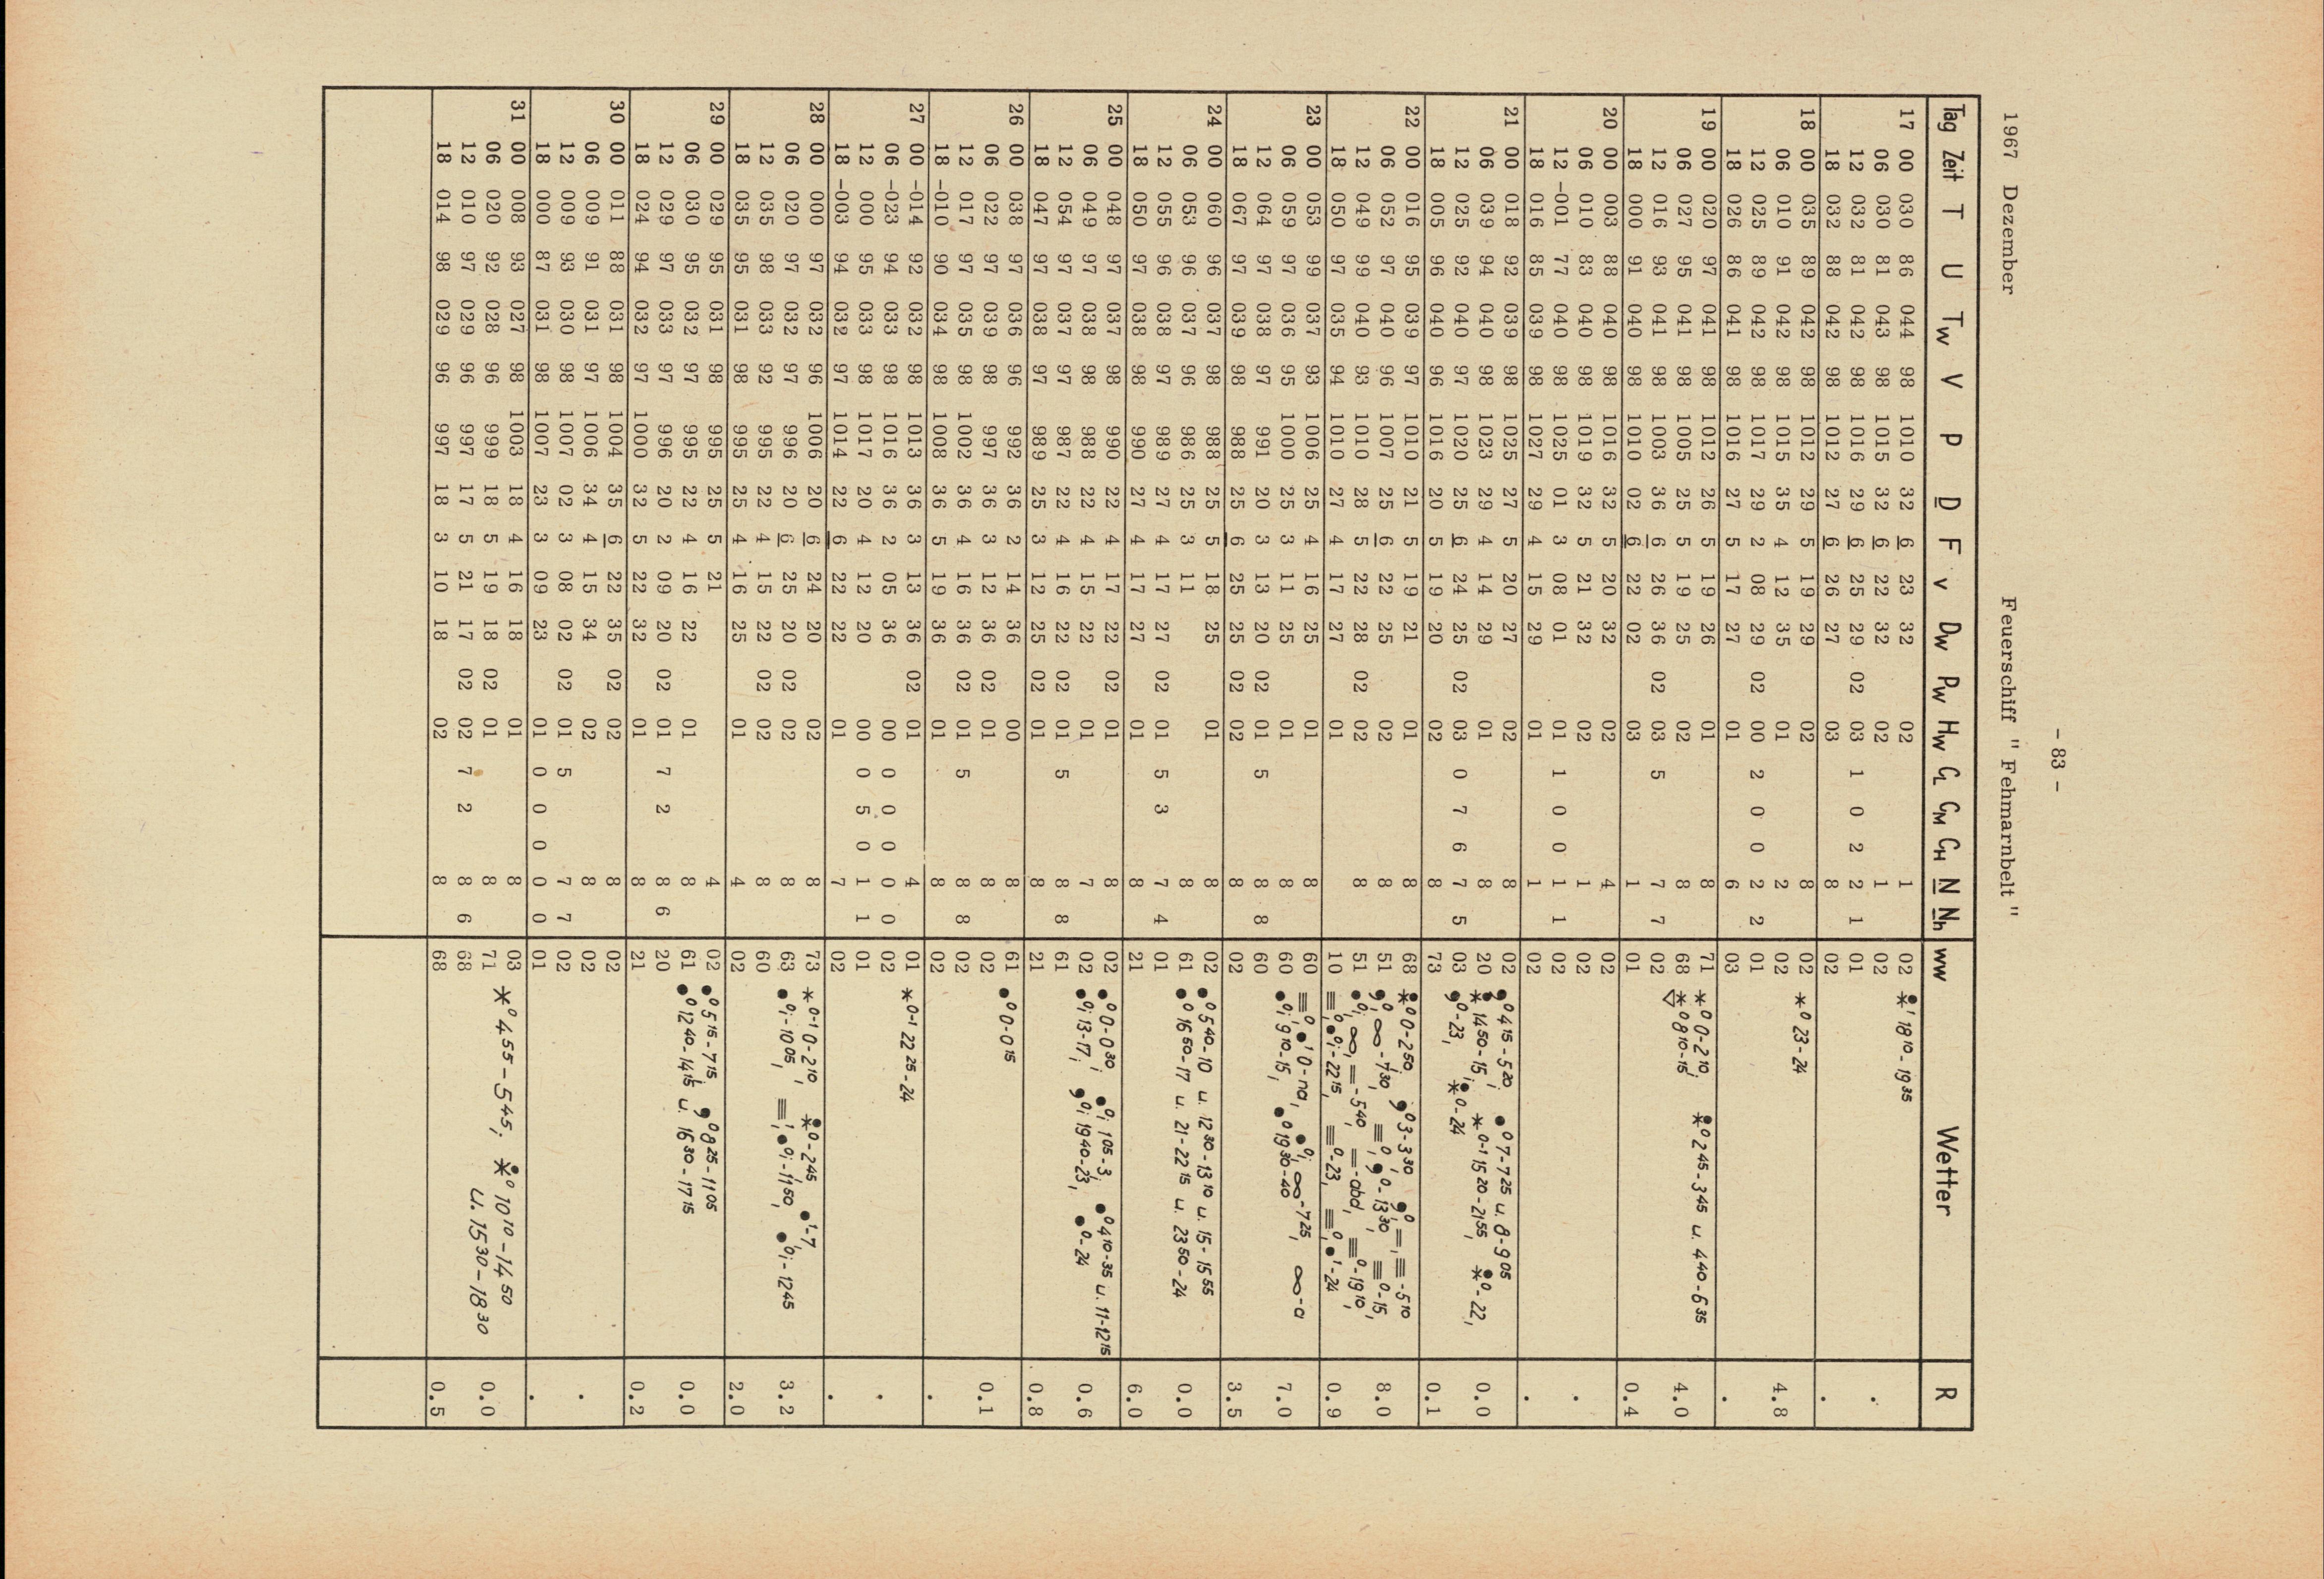 - 83 -
1967 Dezember Feuerschiff " Fehmarnbelt "
Tag Zeit T U Tw V P D F v Dw Pw Hw CL CM CH N Nh ww Wetter R
17 00 030 86 044 98 1010 32 6 23 32 02 1 02 ⁕¹ 18¹⁰-19³⁵
06 030 81 043 98 1015 32 6 22 32 02 1 02 .
12 032 81 042 98 1016 29 6 25 29 02 03 1 0 2 2 1 01
18 032 88 042 98 1012 27 6 26 27 03 8 02 .
18 00 035 89 042 98 1012 29 5 19 29 02 8 02 *⁰ 23-24
06 010 91 042 98 1015 35 4 12 35 01 2 02 4.8
12 025 89 042 98 1017 29 2 08 29 02 00 2 0 0 2 2 01
18 026 86 041 98 1016 27 5 17 27 01 6 03 .
19 00 020 97 041 98 1012 26 5 19 26 01 8 71 *⁰ 0-2¹⁰, ⁕⁰ 2⁴⁵-3⁴⁵ u. 4⁴⁰-6³⁵
06 027 95 041 98 1005 25 5 19 25 02 8 68 ⁰ 8¹⁰-15 4.0
12 016 93 041 98 1003 36 6 26 36 02 03 5 7 7 02
18 000 91 040 98 1010 02 6 22 02 03 1 01 0.4
20 00 003 88 040 98 1016 32 5 20 32 02 4 02
06 010 83 040 98 1019 32 5 21 32 02 1 02 .
12 -001 77 040 98 1025 01 3 08 01 01 1 0 0 1 1 02
18 016 85 039 98 1027 29 4 15 29 01 1 02 .
21 00 018 92 039 98 1025 27 5 20 27 02 8 02 ❟⁰ 4¹⁵-5²⁰; ●⁰ 7-7²⁵ u. 8-9⁰⁵
06 039 94 040 98 1023 29 4 14 29 01 8 20 ⁕ 14⁵⁰-15; *⁰⁻¹ 15²⁰-21⁵⁵, ⁕⁰-22,
12 025 92 040 97 1020 25 6 24 25 02 03 0 7 6 7 5 03 ❟⁰-23, ⁕⁰-24 0.0
18 005 96 040 96 1016 20 5 19 20 02 8 73 0.1
22 00 016 95 039 97 1010 21 5 19 21 01 8 68 ⁕⁰ 0-2⁵⁰, ❟⁰ 3-3³⁰, ❟⁰, =, ≡ -5¹⁰
06 052 97 040 96 1007 25 6 22 25 02 8 51 ❟⁰, ∞ -7³⁰, ≡⁰, ❟⁰-13³⁰, ≡⁰-15, 8.0
12 049 99 040 93 1010 28 5 22 28 02 02 8 51 ●⁰, ∞, = -5⁴⁰, = -abd, ≡⁰-19¹⁰,
18 050 97 035 94 1010 27 4 17 27 01 10 ≡⁰, ●⁰i -22¹⁵, ≡⁰-23, ≡⁰, ●¹-24 0.9
23 00 053 99 037 93 1006 25 4 16 25 01 8 60 ≡⁰, ●¹ 0-na, ●⁰i, ∞ -7²⁵, ∞-a
06 059 97 036 95 1000 25 3 11 25 01 8 60 ●⁰i 9¹⁰-15, ●⁰ 19³⁰-40 7.0
12 064 97 038 97 991 20 3 13 20 02 01 5 8 8 60
18 067 97 039 98 988 25 6 25 25 02 02 8 02 3.5
24 00 060 96 037 98 988 25 5 18 25 01 8 02 ●⁰ 5⁴⁰-10 u. 12³⁰-13¹⁰ u. 15-15⁵⁵
06 053 96 037 96 986 25 3 11 8 61 ●⁰ 16⁵⁰-17 u. 21-22¹⁵ u. 23⁵⁰-24 0.0
12 055 96 038 97 989 27 4 17 27 02 01 5 3 7 4 01
18 050 97 038 98 990 27 4 17 27 01 8 21 6.0
25 00 048 97 037 98 990 22 4 17 22 02 01 8 02 ●⁰ 0-0³⁰, ●⁰i 1⁰⁵-3, ●⁰ 4¹⁰-35 u. 11-12¹⁵
06 049 97 038 98 988 22 4 15 22 01 7 02 ●⁰i 13-17; ❟⁰i 19⁴⁰-23, ●⁰-24 0.6
12 054 97 037 97 987 22 4 16 22 02 01 5 8 8 61
18 047 97 038 97 989 25 3 12 25 02 01 8 21 0.8
26 00 038 97 036 96 992 36 2 14 36 00 8 61 ●⁰ 0-0¹⁵
06 022 97 039 98 997 36 3 12 36 02 01 8 02 0.1
12 017 97 035 98 1002 36 4 16 36 02 01 5 8 8 02
18 -010 90 034 98 1008 36 5 19 36 01 8 02 .
27 00 -014 92 032 98 1013 36 3 13 36 02 01 4 01 *⁰⁻¹ 22²⁵-24
06 -023 94 033 98 1016 36 2 05 36 00 0 0 0 0 0 02 .
12 000 95 033 98 1017 20 4 12 20 00 0 5 0 1 1 01
18 -003 94 032 97 1014 22 6 22 22 01 7 02 .
28 00 000 97 032 96 1006 20 6 24 20 02 8 73 *⁰⁻¹ 0-2¹⁰, ⁕⁰-2⁴⁵, ●¹-7,
06 020 97 032 97 996 20 6 25 20 02 02 8 63 ●⁰i -10⁰⁵, ≡¹, ●⁰i -11⁵⁰, ●⁰i -12⁴⁵ 3.2
12 035 98 033 92 995 22 4 15 22 02 02 8 60
18 035 95 031 98 995 25 4 16 25 01 4 02 2.0
29 00 029 95 031 98 995 25 5 21 4 02 ●⁰ 5¹⁵-7¹⁵, ❟⁰ 8²⁵-11⁰⁵
06 030 95 032 97 995 22 4 16 22 01 8 61 ●⁰ 12⁴⁰-14¹⁵ u. 16³⁰-17¹⁵ 0.0
12 029 97 033 97 996 20 2 09 20 02 01 7 2 8 6 20
18 024 94 032 97 1000 32 5 22 32 01 8 21 0.2
30 00 011 88 031 98 1004 35 6 22 35 02 02 8 02
06 009 91 031 97 1006 34 4 15 34 02 8 02 .
12 009 93 030 98 1007 02 3 08 02 02 01 5 7 7 02
18 000 87 031 98 1007 23 3 09 23 01 0 0 0 0 0 01 .
31 00 008 93 027 98 1003 18 4 16 18 01 8 03 *⁰ 4⁵⁵-5⁴⁵; ⁕⁰ 10¹⁰-14⁵⁰
06 020 92 028 96 999 18 5 19 18 02 01 8 71 u. 15³⁰-18³⁰ 0.0
12 010 97 029 96 997 17 5 21 17 02 02 7 2 8 6 68
18 014 98 029 96 997 18 3 10 18 02 8 68 0.5